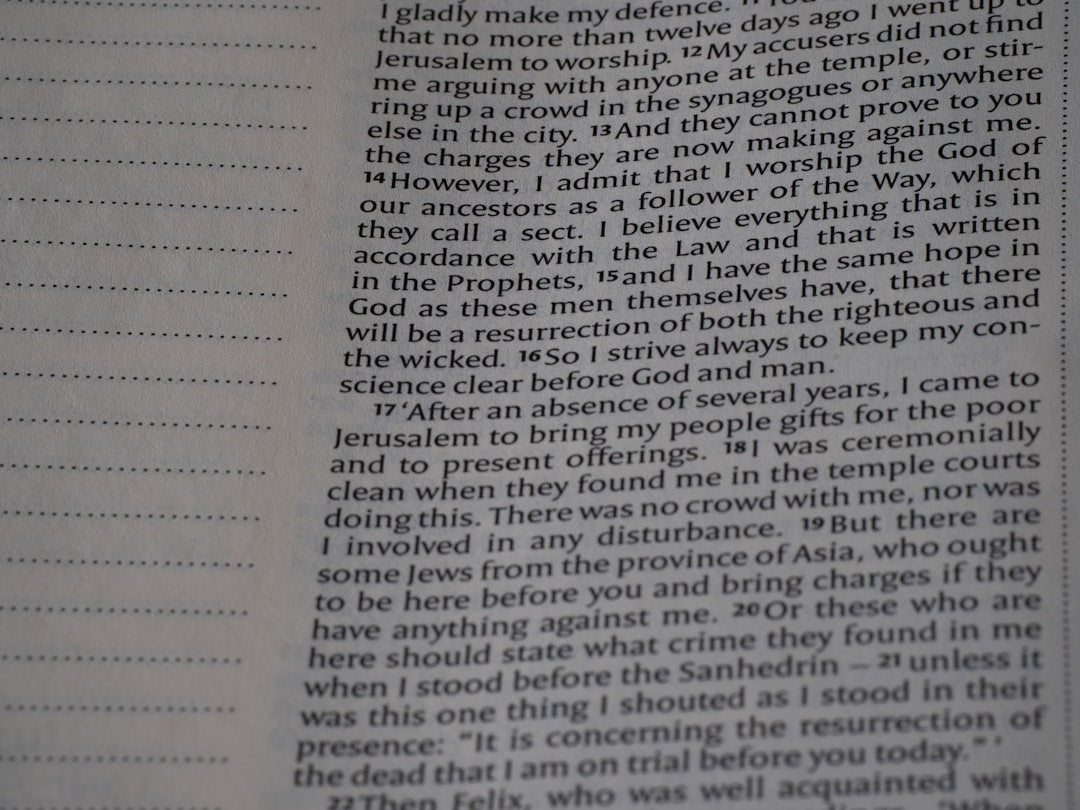 I gladly make my defence. 11
that no more than twelve days ago I went up to
Jerusalem to worship. 12 My accusers did not find
me arguing with anyone at the temple, or stir-
ring up a crowd in the synagogues or anywhere
else in the city. 13 And they cannot prove to you
the charges they are now making against me.
14 However, I admit that I worship the God of
our ancestors as a follower of the Way, which
they call a sect. I believe everything that is in
accordance with the Law and that is written
in the Prophets, 15 and I have the same hope in
God as these men themselves have, that there
will be a resurrection of both the righteous and
the wicked. 16 So I strive always to keep my con-
science clear before God and man.
17 ‘After an absence of several years, I came to
Jerusalem to bring my people gifts for the poor
and to present offerings. 18 I was ceremonially
clean when they found me in the temple courts
doing this. There was no crowd with me, nor was
I involved in any disturbance. 19 But there are
some Jews from the province of Asia, who ought
to be here before you and bring charges if they
have anything against me. 20 Or these who are
here should state what crime they found in me
when I stood before the Sanhedrin – 21 unless it
was this one thing I shouted as I stood in their
presence: “It is concerning the resurrection of
the dead that I am on trial before you today.” ’
22 Then Felix, who was well acquainted with